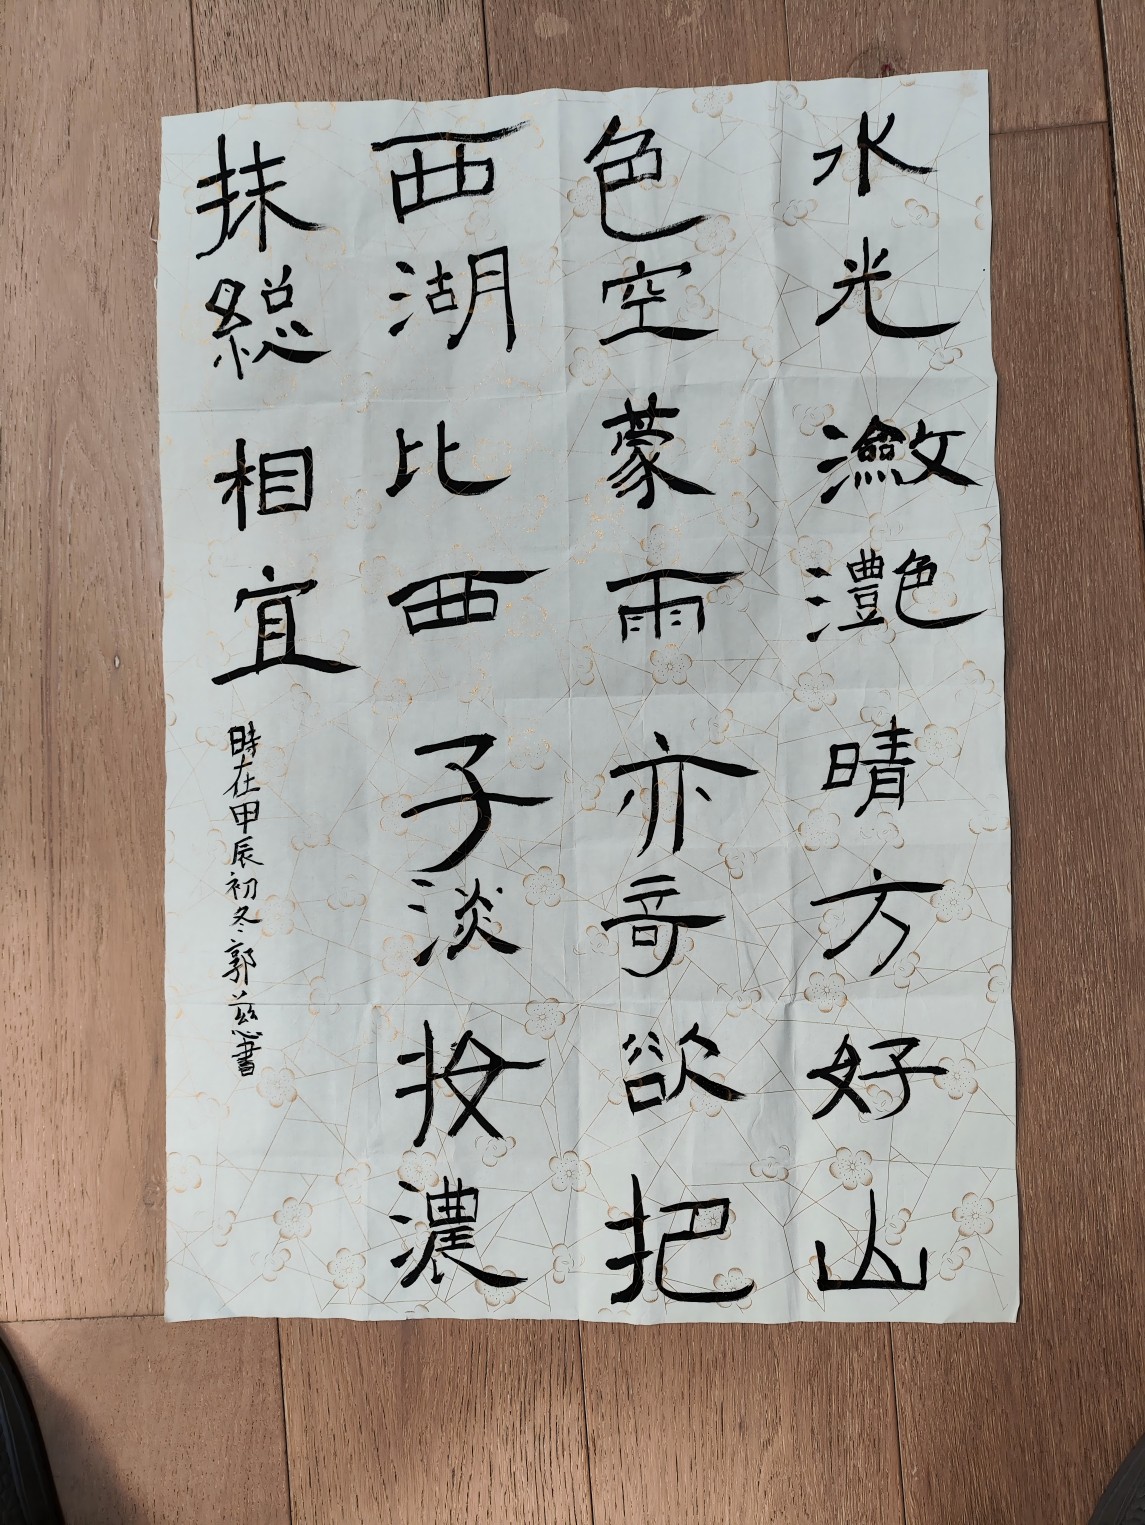 水光瀲灧晴方好山
色空蒙雨亦竒欲把
西湖比西子淡妆濃
抹総相宜
時在甲辰初冬郭慈書